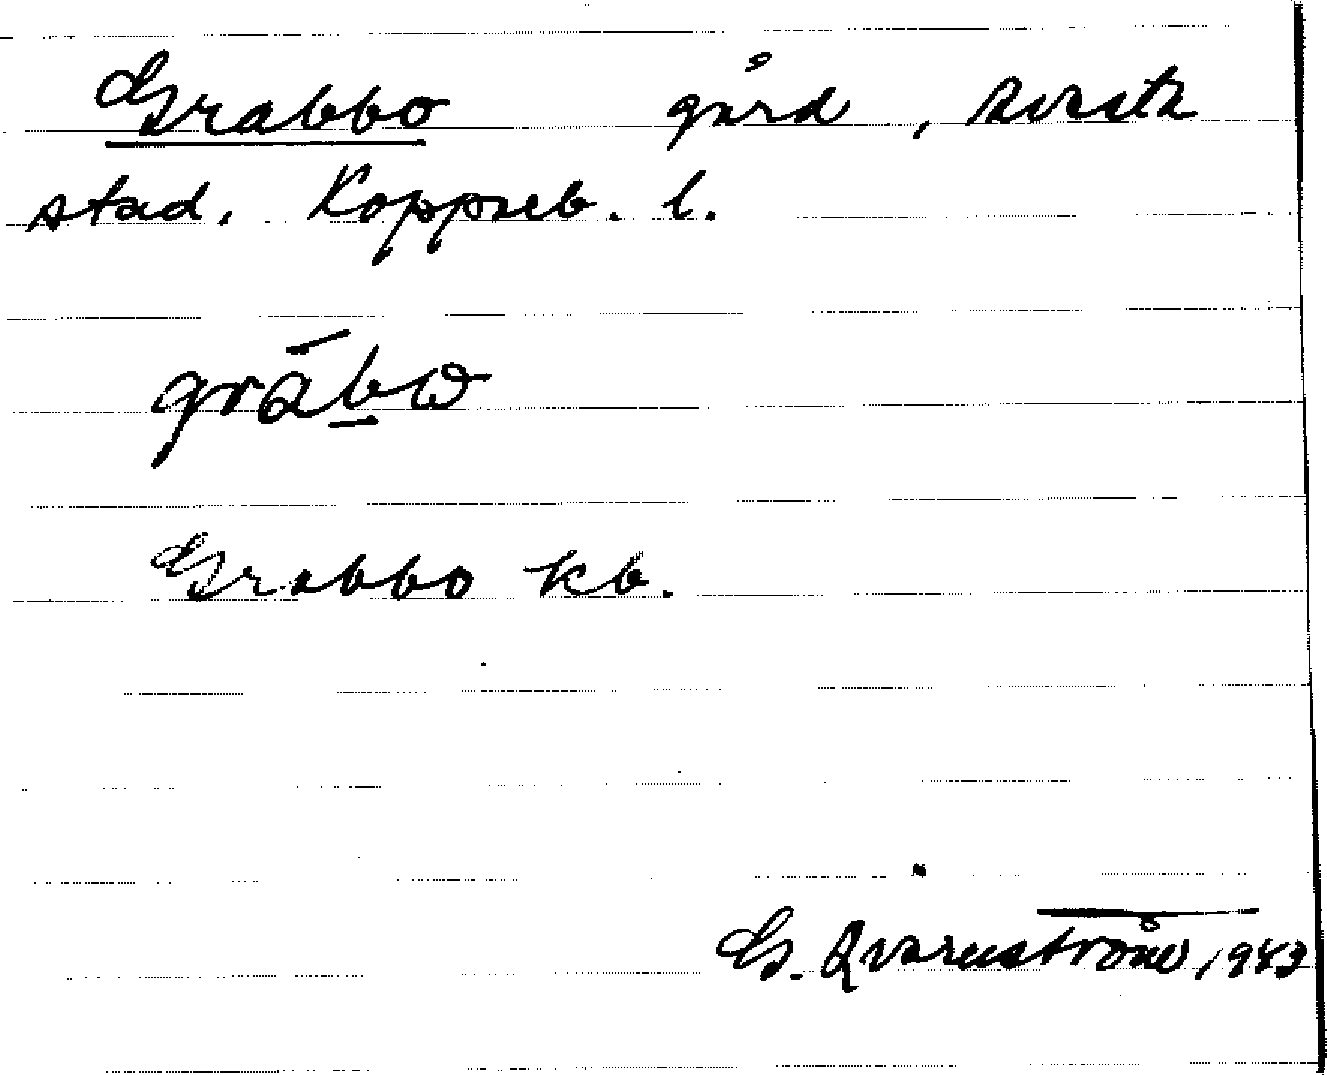 Grabbo gård, Avesta
stad. Kopparb. l.
gràb̲ω
Grabbo kb.
G. Qvarnström, 1943